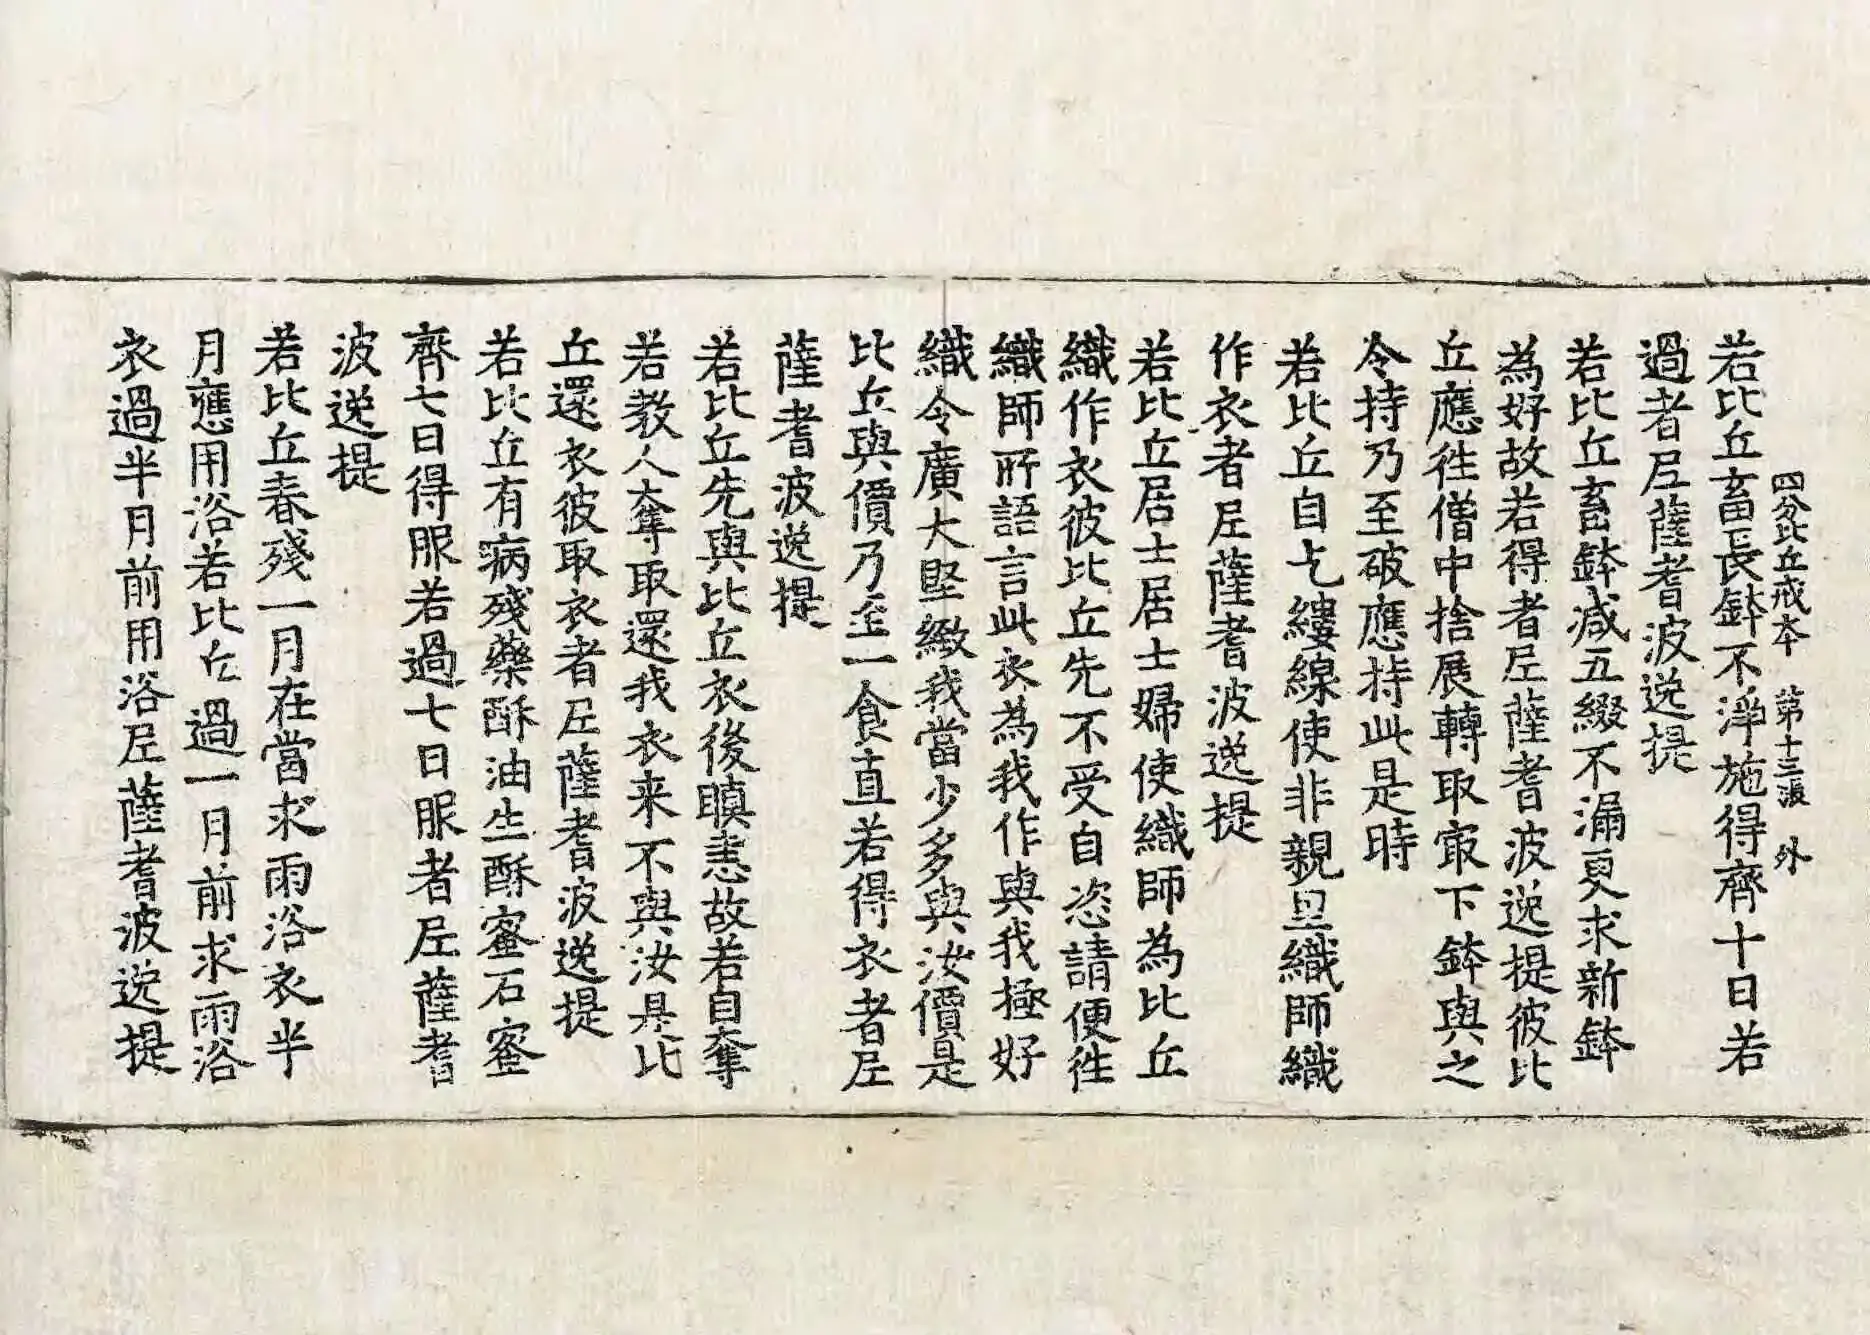 四分比丘戒本 第十三張 外
若比丘畜長鉢不淨施得齊十日若
過者尼薩耆波逸提
若比丘畜鉢減五綴不漏更求新鉢
為好故若得者尼薩耆波逸提彼比
丘應往僧中捨展轉取㝡下鉢與之
令持乃至破應持此是時
若比丘自乞縷線使非親里織師織
作衣者尼薩耆波逸提
若比丘居士居士婦使織師為比丘
織作衣彼比丘先不受自恣請便往
織師所語言此衣為我作與我極好
織令廣大堅緻我當少多與汝價是
比丘與價乃至一食直若得衣者尼
薩耆波逸提
若比丘先與比丘衣後瞋恚故若自奪
若教人奪取還我衣来不與汝是比
丘還衣彼取衣者尼薩耆波逸提
若比丘有病殘藥酥油生酥蜜石蜜
齊七日得服若過七日服者尼薩耆
波逸提
若比丘春殘一月在當求雨浴衣半
月應用浴若比丘過一月前求雨浴
衣過半月前用浴尼薩耆波逸提